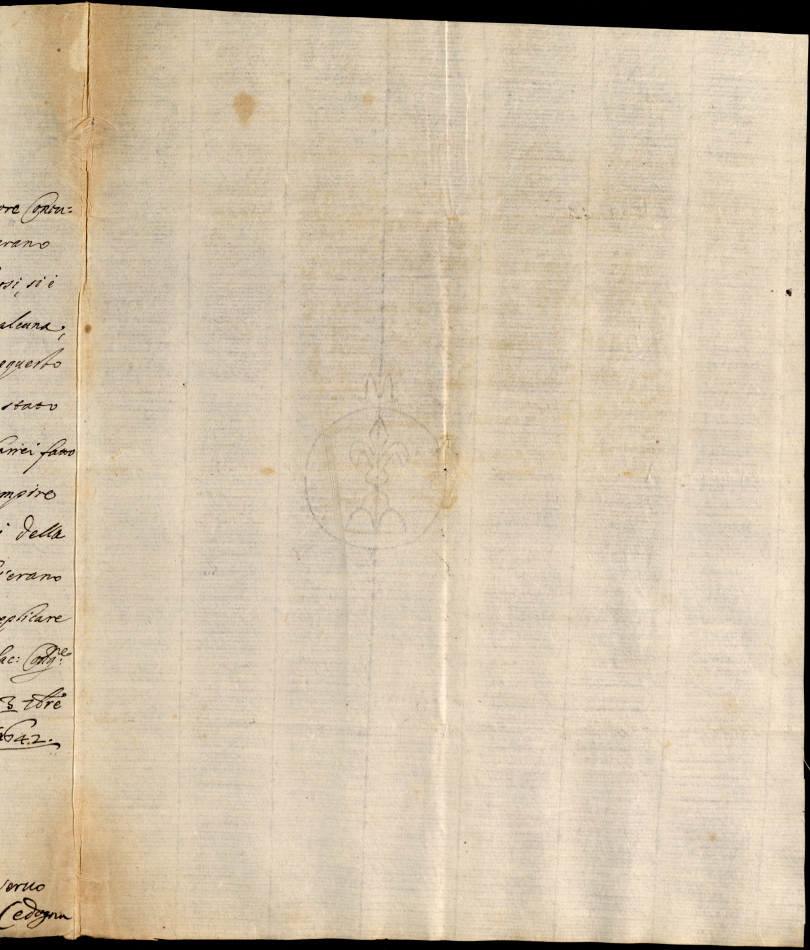 ore Contu=
erano
osi, si è
alcuna,
questo
stato
fatto
mpire
i della
v'erano
eplicare
ac: Cong.ne
3 7bre
1642.
servo
Cedogna
M